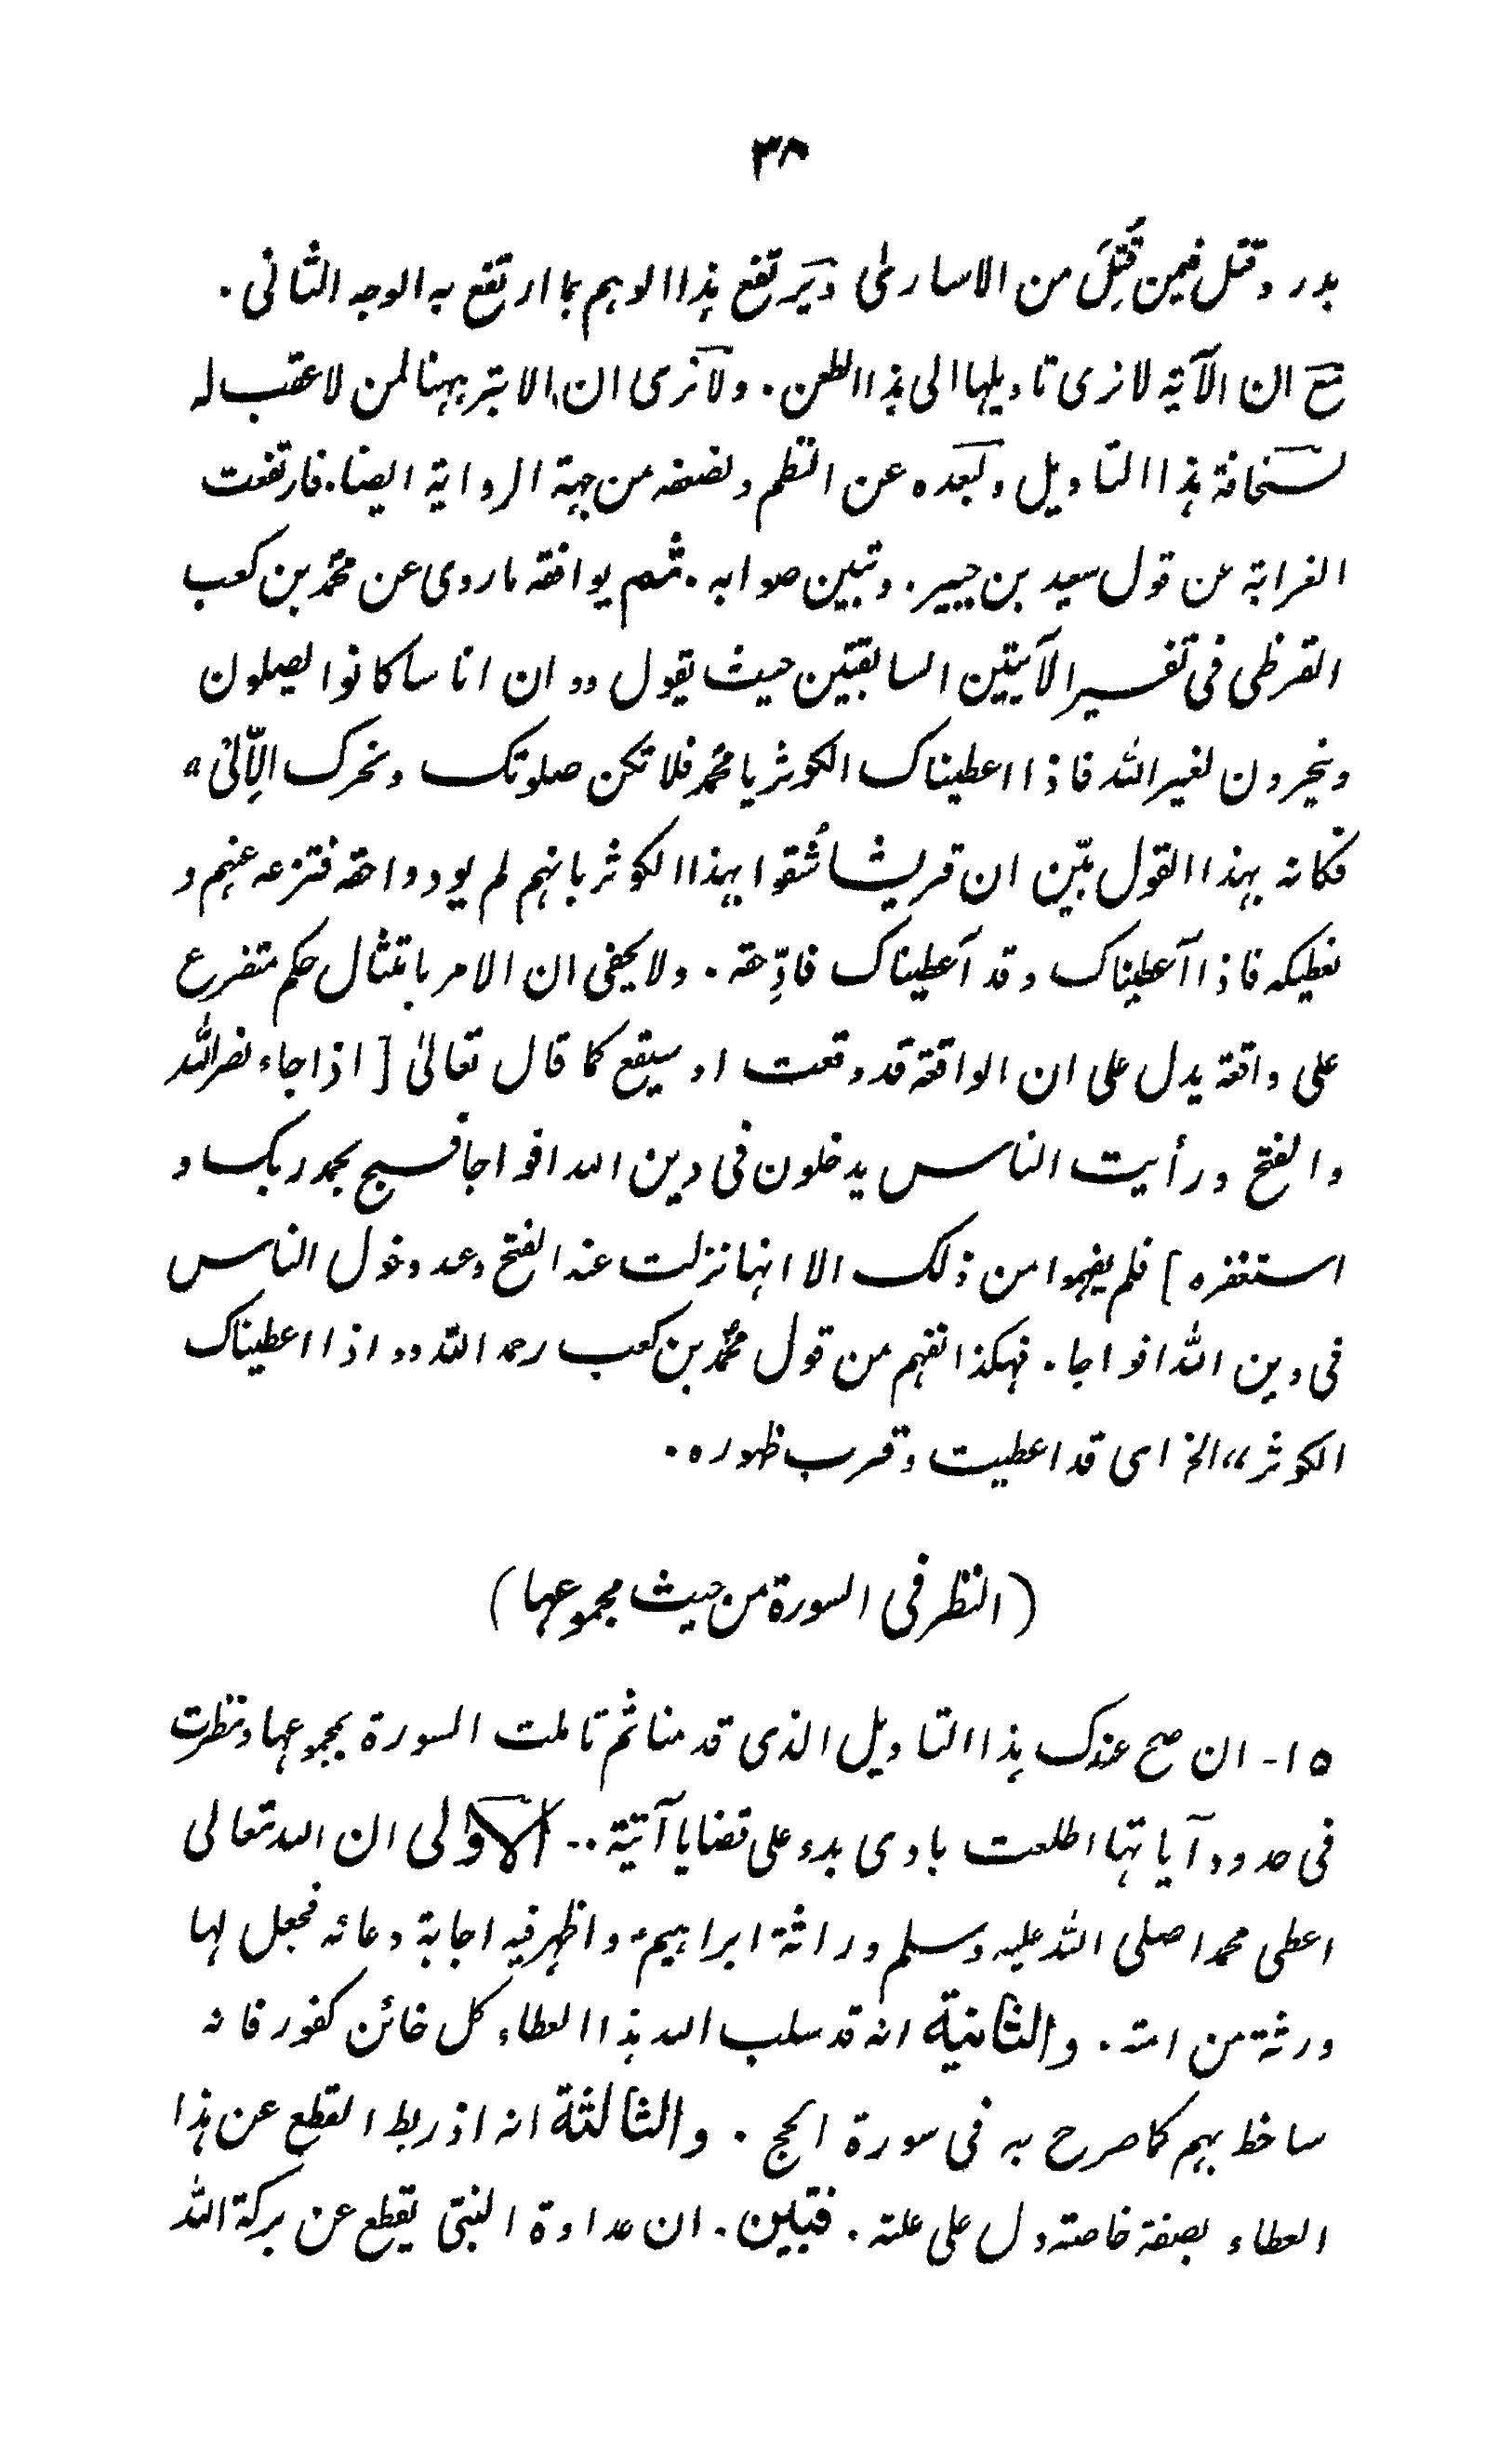 ٣٨
بدر وقتل فیمن قُتِلَ من الاساری ویرتفع هذا الوهم بما ارتفع به الوجه الثانی.
مع ان الآیة لا نری تاویلها الی هذا الطعن. ولا نری ان الابتر ههنا لمن لا عقب له
لسخافة هذا التاویل ولبعده عن النظم ولضعفه من جهة الروایة ایضا. فارتفعت
الغرابة عن قول سعید بن جبیر. وتبین صوابه. ثم یوافقه ما روی عن محمد بن کعب
القرظی فی تفسیر الآیتین السابقتین حیث یقول ،، ان اناسا کانوا یصلون
وینحرون لغیر الله فاذا اعطیناک الکوثر یا محمد فلا تکن صلوتک ونحرک الا لی“
فکانه بهذا القول بیّن ان قریشا شُقوا بهذا الکوثر بانهم لم یودوا حقه فننزعه عنهم و
نعطیکه فاذا اعطیناک وقد اعطیناک فادِّ حقه. ولا یخفی ان الامر بامتثال حکم متفرع
علی واقعة یدل علی ان الواقعة قد وقعت او سیقع کما قال تعالیٰ [ اذا جاء نصر الله
والفتح ورأیت الناس یدخلون فی دین الله افواجا فسبح بحمد ربک و
استغفره ] فلم یفهموا من ذلک الا انها نزلت عند الفتح وعند دخول الناس
فی دین الله افواجا. فهکذا نفهم من قول محمد بن کعب رحمه الله ،، اذا اعطیناک
الکوثر،، الخ ای قد اعطیت وقرب ظهوره.
(النظر فی السورة من حیث مجموعها)
١٥- ان صح عندک هذا التاویل الذی قدمنا ثم تاملت السورة بمجموعها ونظرت
فی حدود آیاتها اطلعت بادی بدء علی قضایا آتیة.- الاولی ان الله تعالی
اعطی محمدا صلی الله علیه وسلم وراثة ابراهیمؑ واظهر فیه اجابة دعائه فجعل لها
ورثة من امته. والثانیة انه قد سلب الله هذا العطاء کل خائن کفور فانه
ساخط بهم کما صرح به فی سورة الحج. والثالثة انه اذ ربط القطع عن هذا
العطاء بصفة خاصة دل علی علته. فتبین. ان عداوة النبیؐ یقطع عن برکة الله